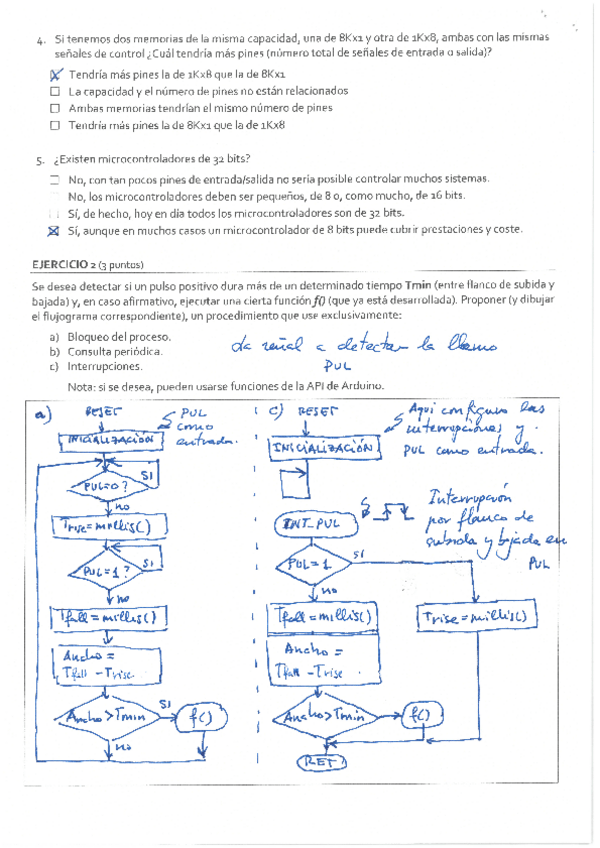 4. Si tenemos dos memorias de la misma capacidad, una de 8Kx1 y otra de 1Kx8, ambas con las mismas
señales de control ¿Cuál tendría más pines (número total de señales de entrada o salida)?
Tendría más pines la de 1Kx8 que la de 8Kx1
La capacidad y el número de pines no están relacionados
Ambas memorias tendrían el mismo número de pines
Tendría más pines la de 8Kx1 que la de 1Kx8
5. ¿Existen microcontroladores de 32 bits?
No, con tan pocos pines de entrada/salida no sería posible controlar muchos sistemas.
No, los microcontroladores deben ser pequeños, de 8 o, como mucho, de 16 bits.
Sí, de hecho, hoy en día todos los microcontroladores son de 32 bits.
Sí, aunque en muchos casos un microntrolador de 8 bits puede cubrir prestaciones y coste.
EJERCICIO 2 (3 puntos)
Se desea detectar si un pulso positivo dura más de un determinado tiempo Tmin (entre flanco de subida y
bajada) y, en caso afirmativo, ejecutar una cierta función f() (que ya está desarrollada). Proponer (y dibujar
el flujograma correspondiente), un procedimiento que use exclusivamente:
a) Bloqueo del proceso.
b) Consulta periódica.
c) Interrupciones.
La señal a detectar la llamo
PUL
Nota: si se desea, pueden usarse funciones de la API de Arduino.
a) RESET
PUL
como
entrada.
INICIALIZACIÓN
PUL=0?
SI
no
Trise=millis()
PUL=1?
SI
no
Tfall=millis()
Ancho =
Tfall -Trise.
Ancho>Tmin
SI
f()
no
c) RESET
Aquí configuro las
interrupciones y
PUL como entrada.
INICIALIZACIÓN
INT_PUL
Interrupción
por flanco de
subida y bajada en
PUL
PUL=1
SI
no
Tfall=millis()
Trise=millis()
Ancho =
Tfall -Trise
Ancho>Tmin
f()
RET